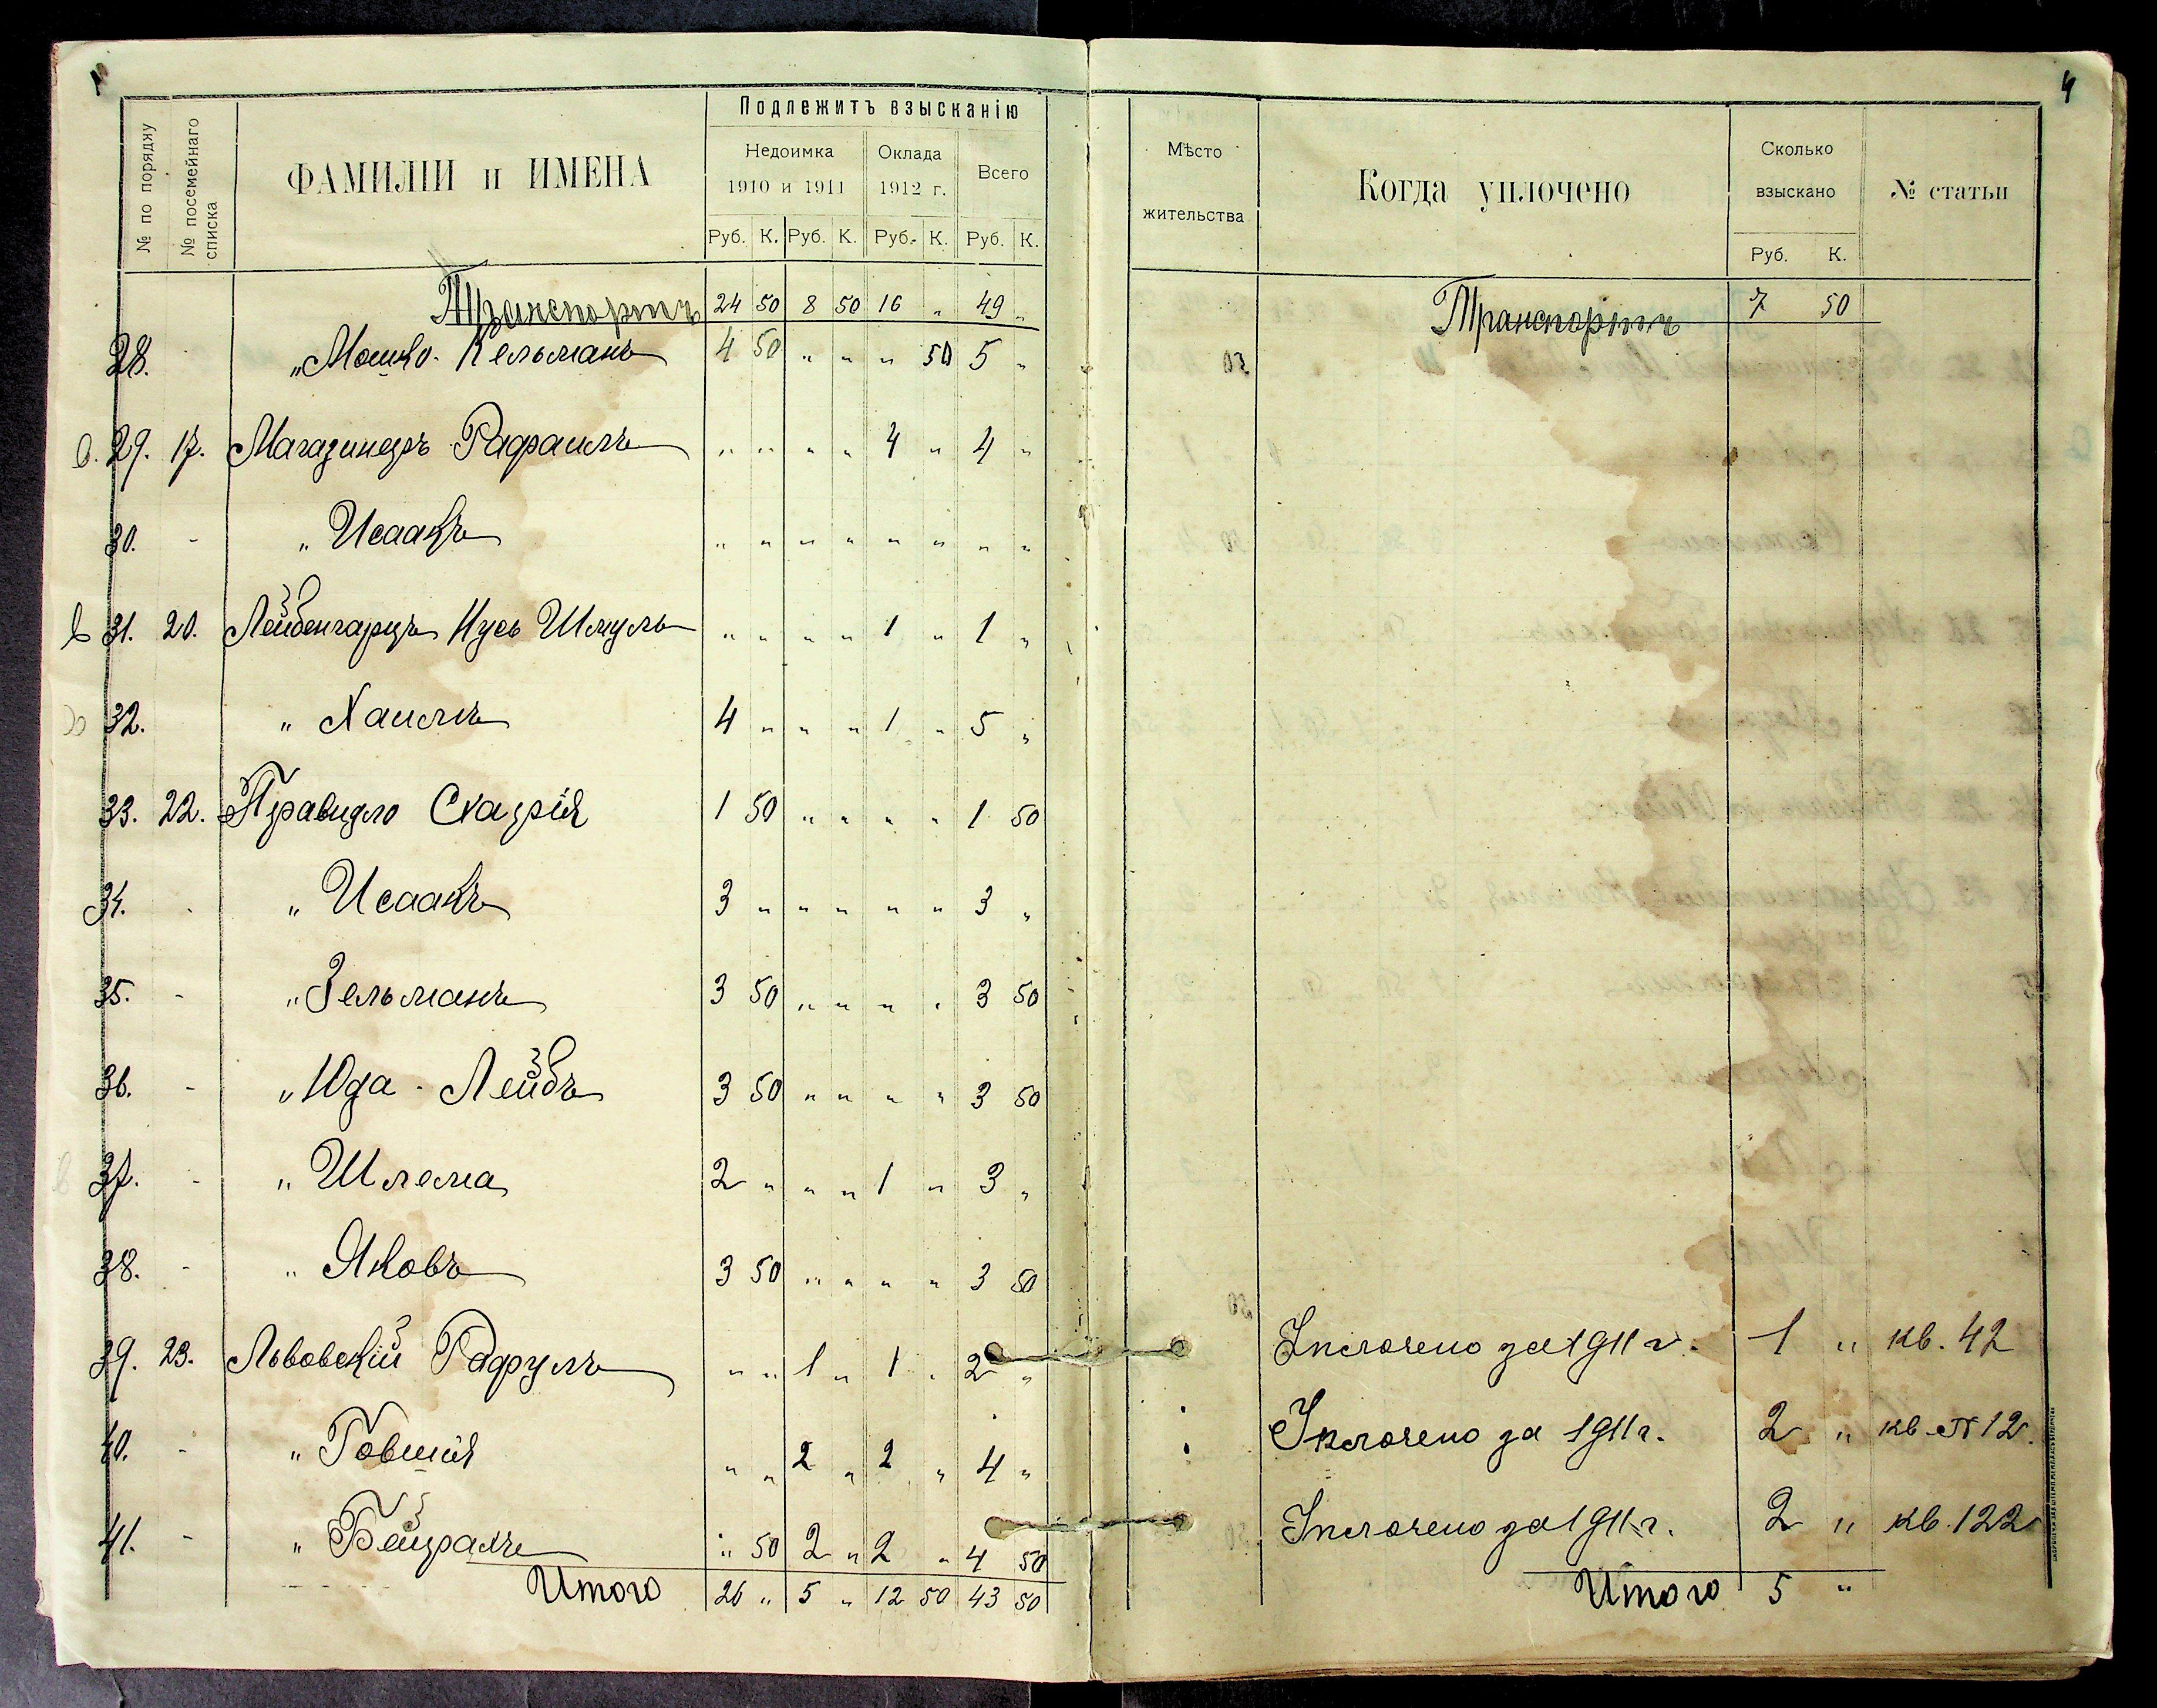 4
Подлежитъ взысканію
№ по порядку
№ посемейнаго списка
ФАМИЛІИ и ИМЕНА
Недоимка 1910 и 1911
Оклада 1912 г.
Всего
Руб. К. Руб. К. Руб. К. Руб. К.
Мѣсто жительства
Когда уплочено
Сколько взыскано
Руб. К.
№ статьи
Транспортъ 24 50 8 50 16 " 49 "
28. " Мошко-Кельманъ 4 50 " " " 50 5 "
29. 17. Магазинеръ Рафаилъ " " " " 4 " 4 "
30. - " Исаакъ " " " " " " " "
31. 20. Лейбенгарцъ Нусь Шмуль " " " " 1 " 1 "
32. " Хаимъ 4 " " " 1 " 5 "
33. 22. Правидло Схарія 1 50 " " " " 1 50
34. - " Исаакъ 3 " " " " " 3 "
35. - " Зельманъ 3 50 " " " " 3 50
36. - " Юда-Лейбъ 3 50 " " " " 3 50
37. - " Шлема 2 " " " 1 " 3 "
38. - " Яковъ 3 50 " " " " 3 50
39. 23. Львовскій Рафулъ " " 1 " 1 " 2 "
40. - " Говшія " " 2 " 2 " 4 "
41. - " Бейрахъ " 50 2 " 2 " 4 50
Итого 26 " 5 " 12 50 43 50
Транспортъ 7 50
Уплочено за 1911 г. 1 " кв. 42
Уплочено за 1911 г. 2 " кв. № 12.
Уплочено за 1911 г. 2 " кв. 122
Итого 5 "